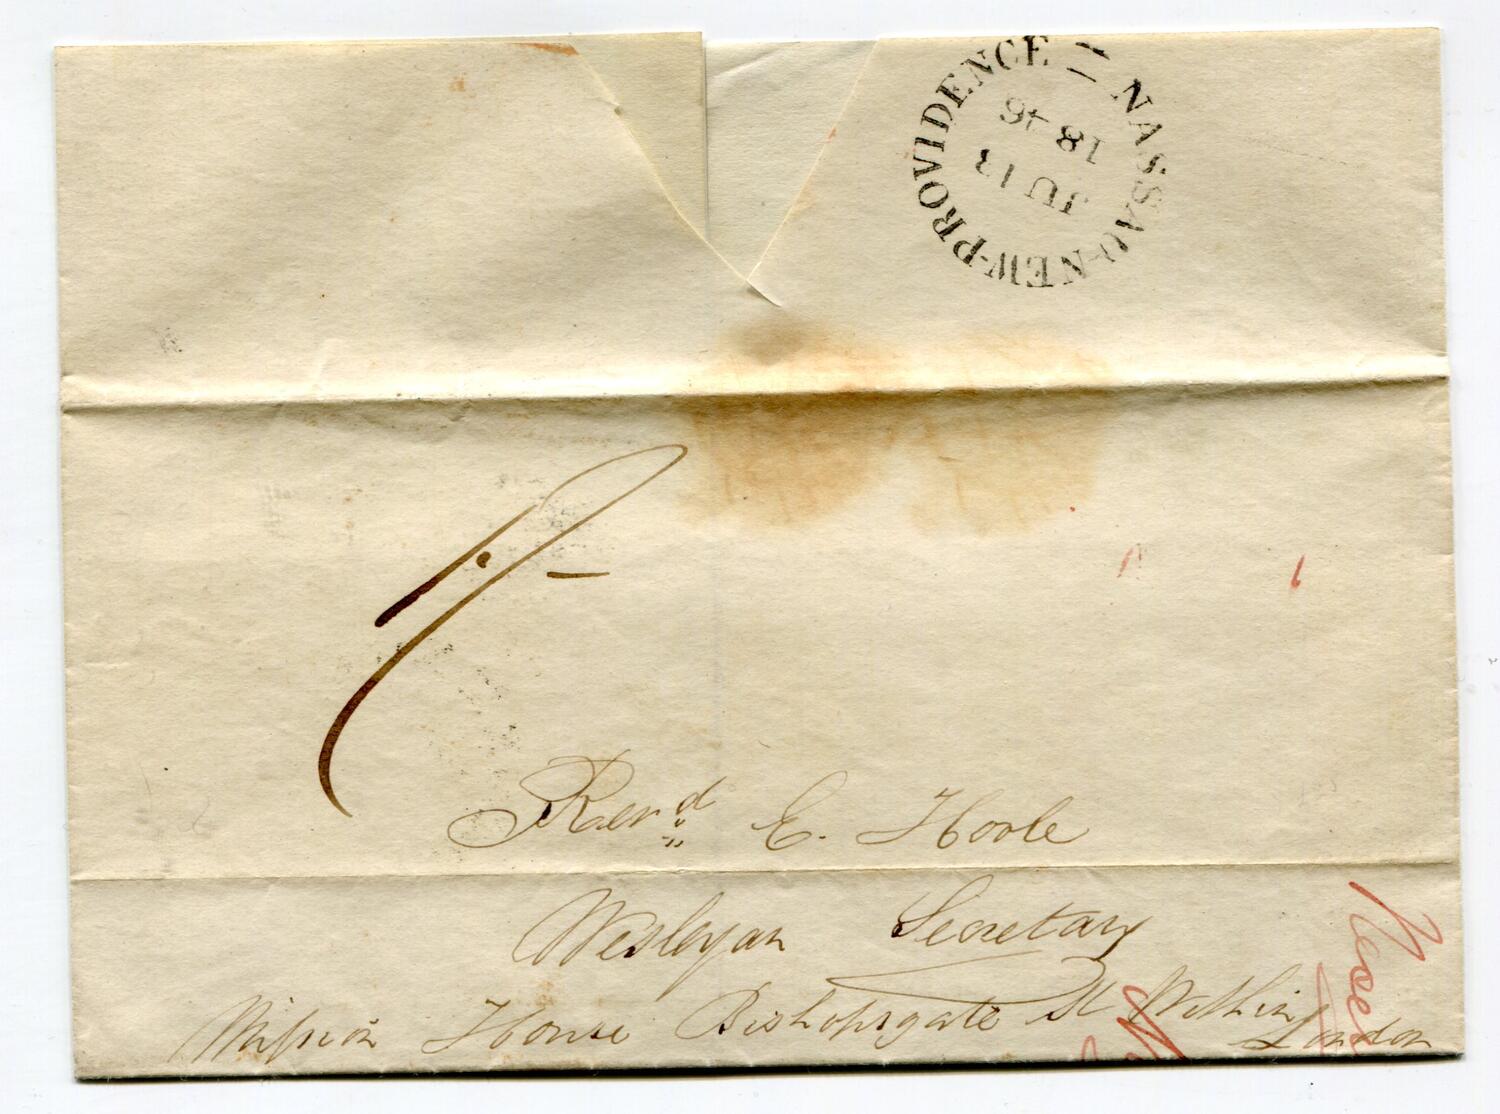 NASSAU-NEW-PROVIDENCE
JU 13
1846
1/-
Revd E. Hoole
Wesleyan Secretary
Mission House Bishopsgate St Within
London